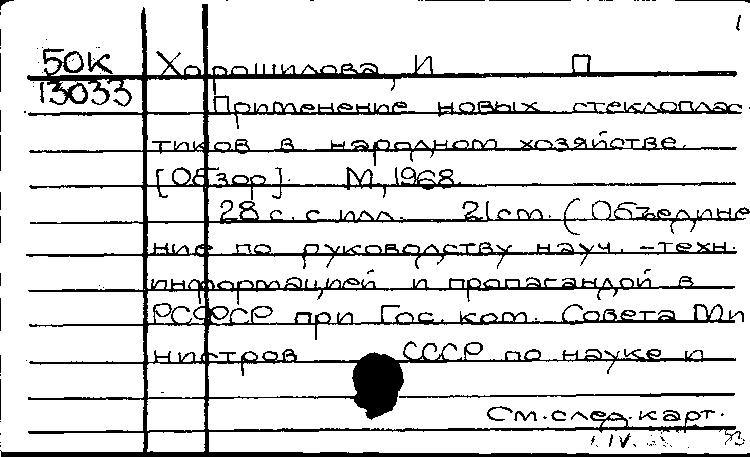 1
50К Хорошилова, И П
13033 Применение новых стеклоплас-
тиков в народном хозяйстве.
[Обзор]. М, 1968.
28 с. с илл. 21 cm. (Объедине
ние по руководству науч. -техн.
информацией и пропагандой в
РСФСР при Гос. ком. Совета Ми
нистров СССР по науке и
См. след. карт.